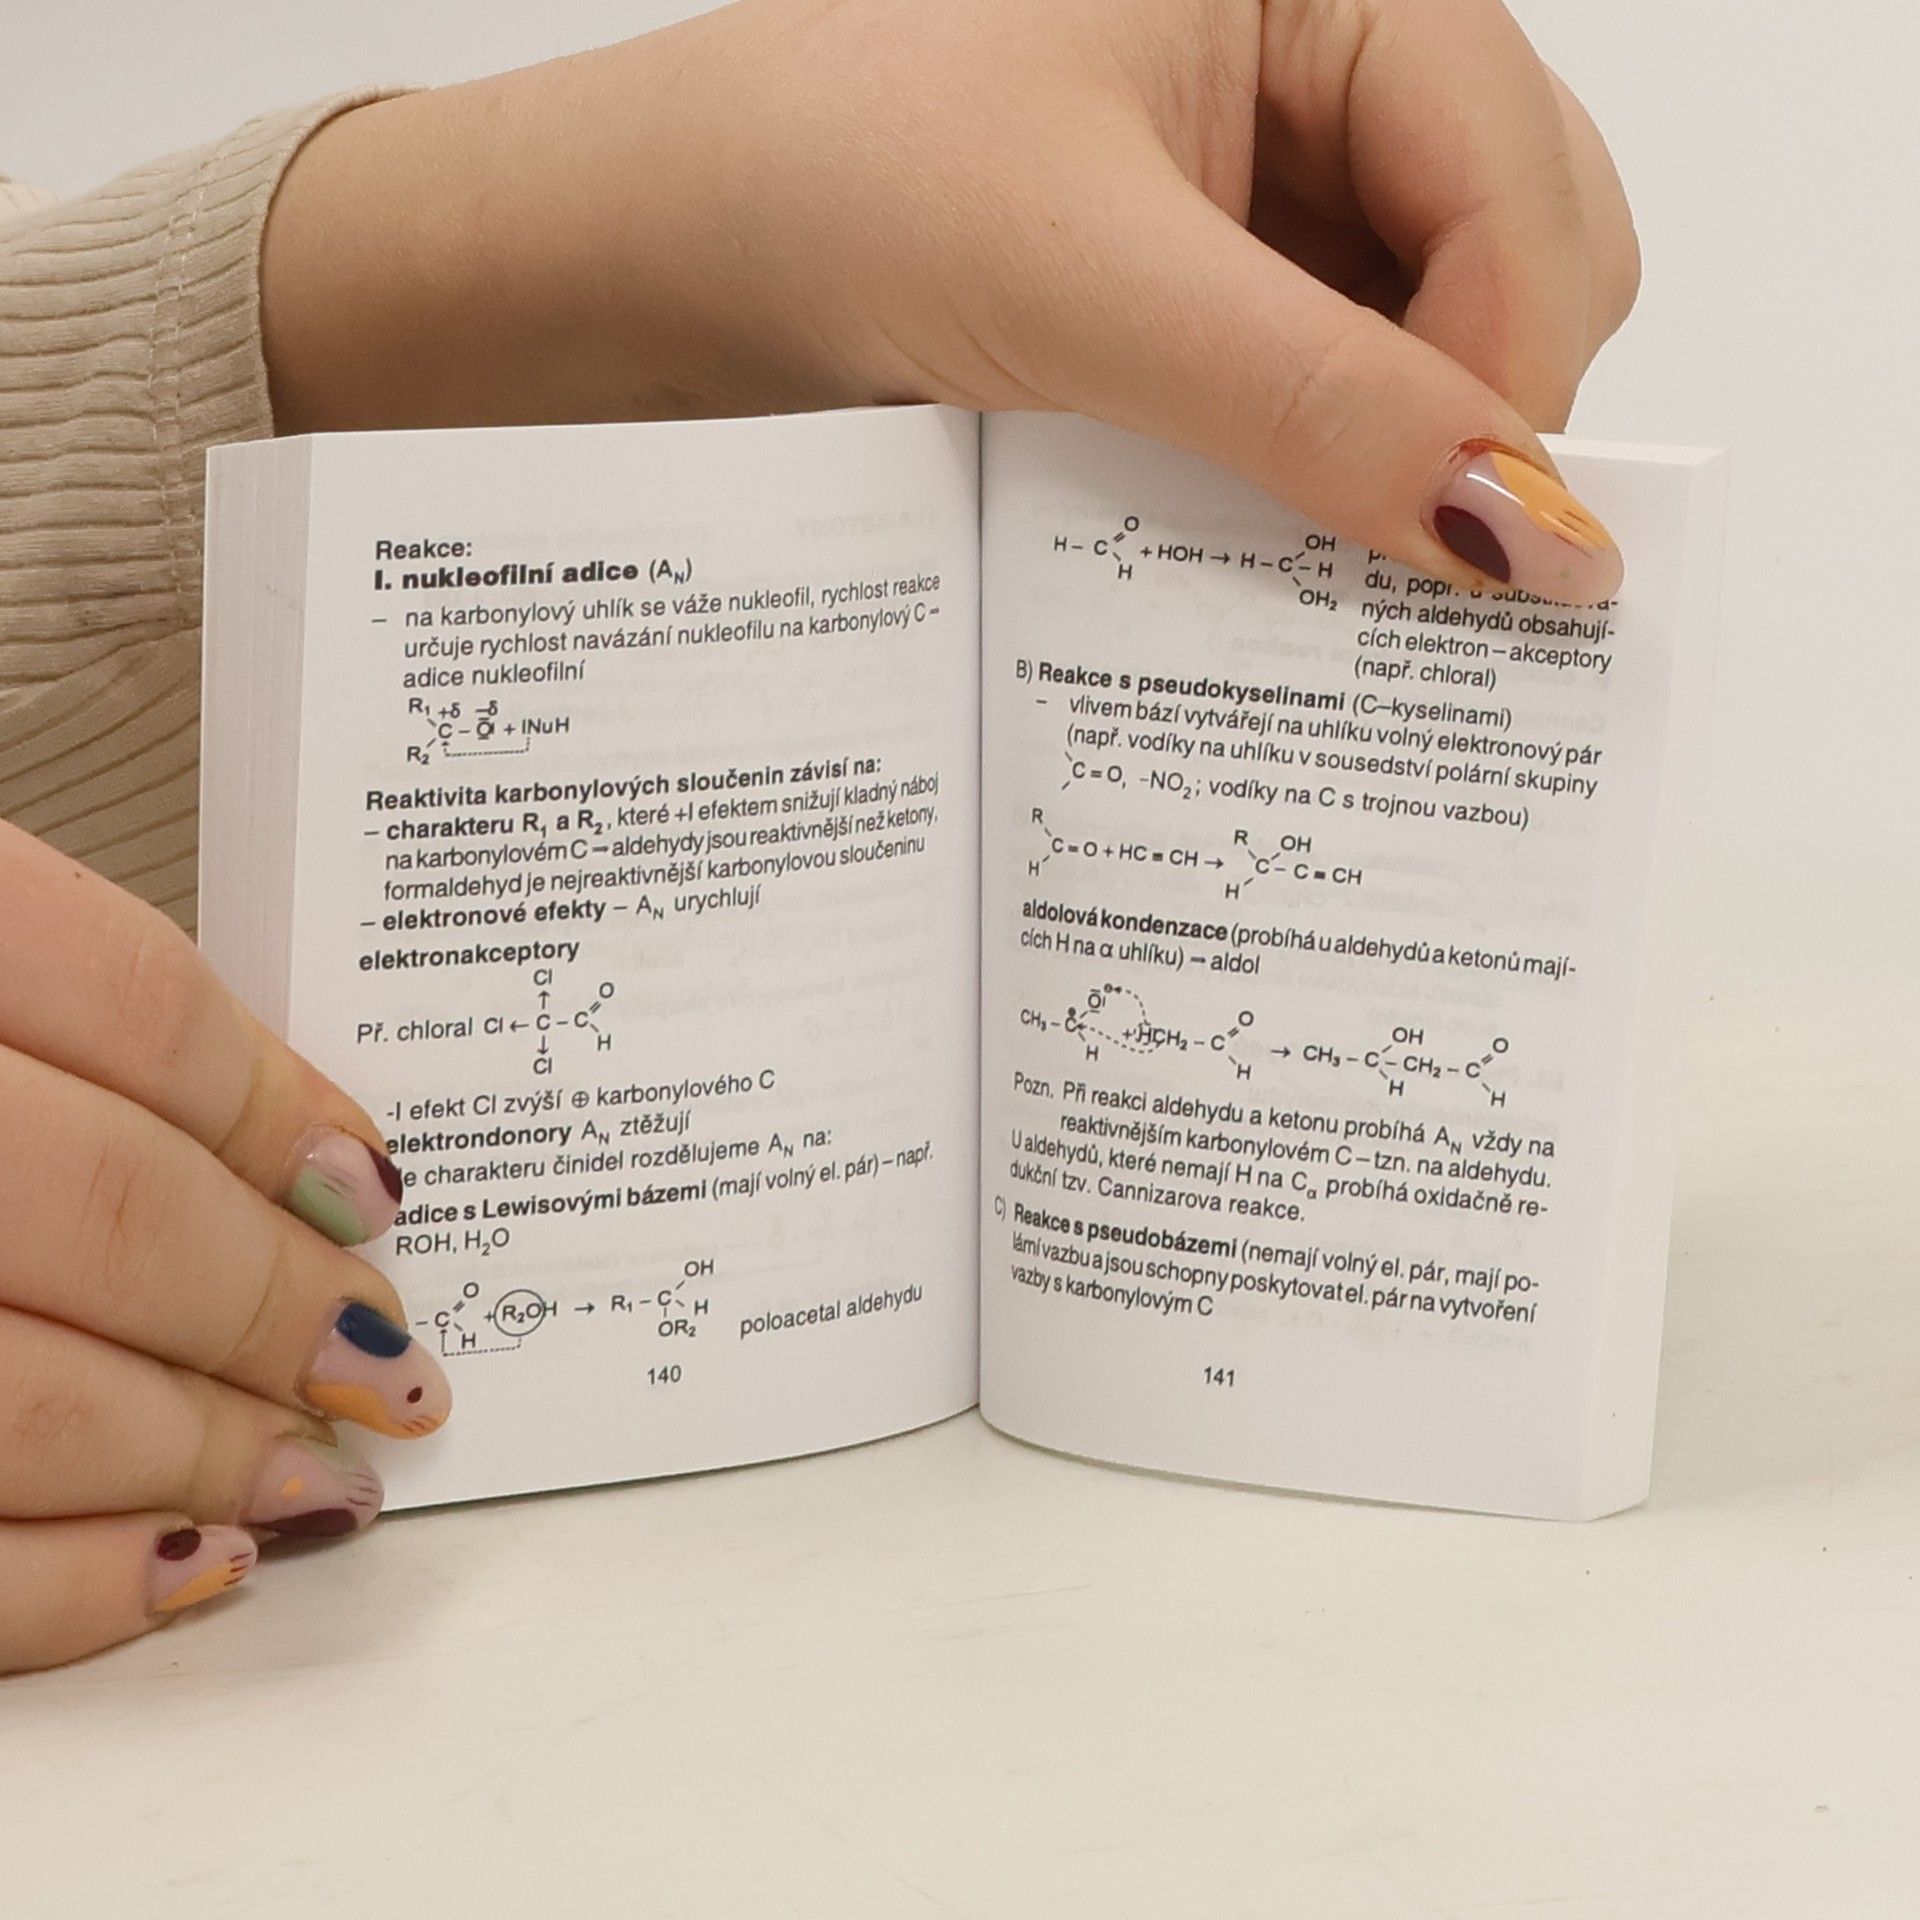 Reakce:
I. nukleofilní adice (A_N)
– na karbonylový uhlík se váže nukleofil, rychlost reakce
určuje rychlost navázání nukleofilu na karbonylový C –
adice nukleofilní
R₁ +δ –δ
C – O̅ + INuH
R₂
Reaktivita karbonylových sloučenin závisí na:
– charakteru R₁ a R₂, které +I efektem snižují kladný náboj
na karbonylovém C – aldehydy jsou reaktivnější než ketony,
formaldehyd je nejreaktivnější karbonylovou sloučeninu
– elektronové efekty – A_N urychlují
elektronakceptory
Cl
↑ O
Př. chloral Cl ← C – C
↓ H
Cl
-I efekt Cl zvýší ⊕ karbonylového C
elektrondonory A_N ztěžují
charakteru činidel rozdělujeme A_N na:
adice s Lewisovými bázemi (mají volný el. pár) – např.
ROH, H₂O
O OH
– C + R₂OH → R₁ – C – H
H OR₂ poloacetal aldehydu
140
O OH
H – C + HOH → H – C – H
H OH₂
du, popř.
ných aldehydů obsahují-
cích elektron – akceptory
(např. chloral)
B) Reakce s pseudokyselinami (C–kyselinami)
– vlivem bází vytvářejí na uhlíku volný elektronový pár
(např. vodíky na uhlíku v sousedství polární skupiny
C=O, -NO₂; vodíky na C s trojnou vazbou)
R R OH
C=O + HC≡CH → C – C≡CH
H H
aldolová kondenzace (probíhá u aldehydů a ketonů mají-
cích H na α uhlíku) – aldol
O̅I O OH O
CH₃ – C + HCH₂ – C → CH₃ – C – CH₂ – C
H H H H
Pozn. Při reakci aldehydu a ketonu probíhá A_N vždy na
reaktivnějším karbonylovém C – tzn. na aldehydu.
U aldehydů, které nemají H na C_α probíhá oxidačně re-
dukční tzv. Cannizarova reakce.
C) Reakce s pseudobázemi (nemají volný el. pár, mají po-
lární vazbu a jsou schopny poskytovat el. pár na vytvoření
vazby s karbonylovým C
141